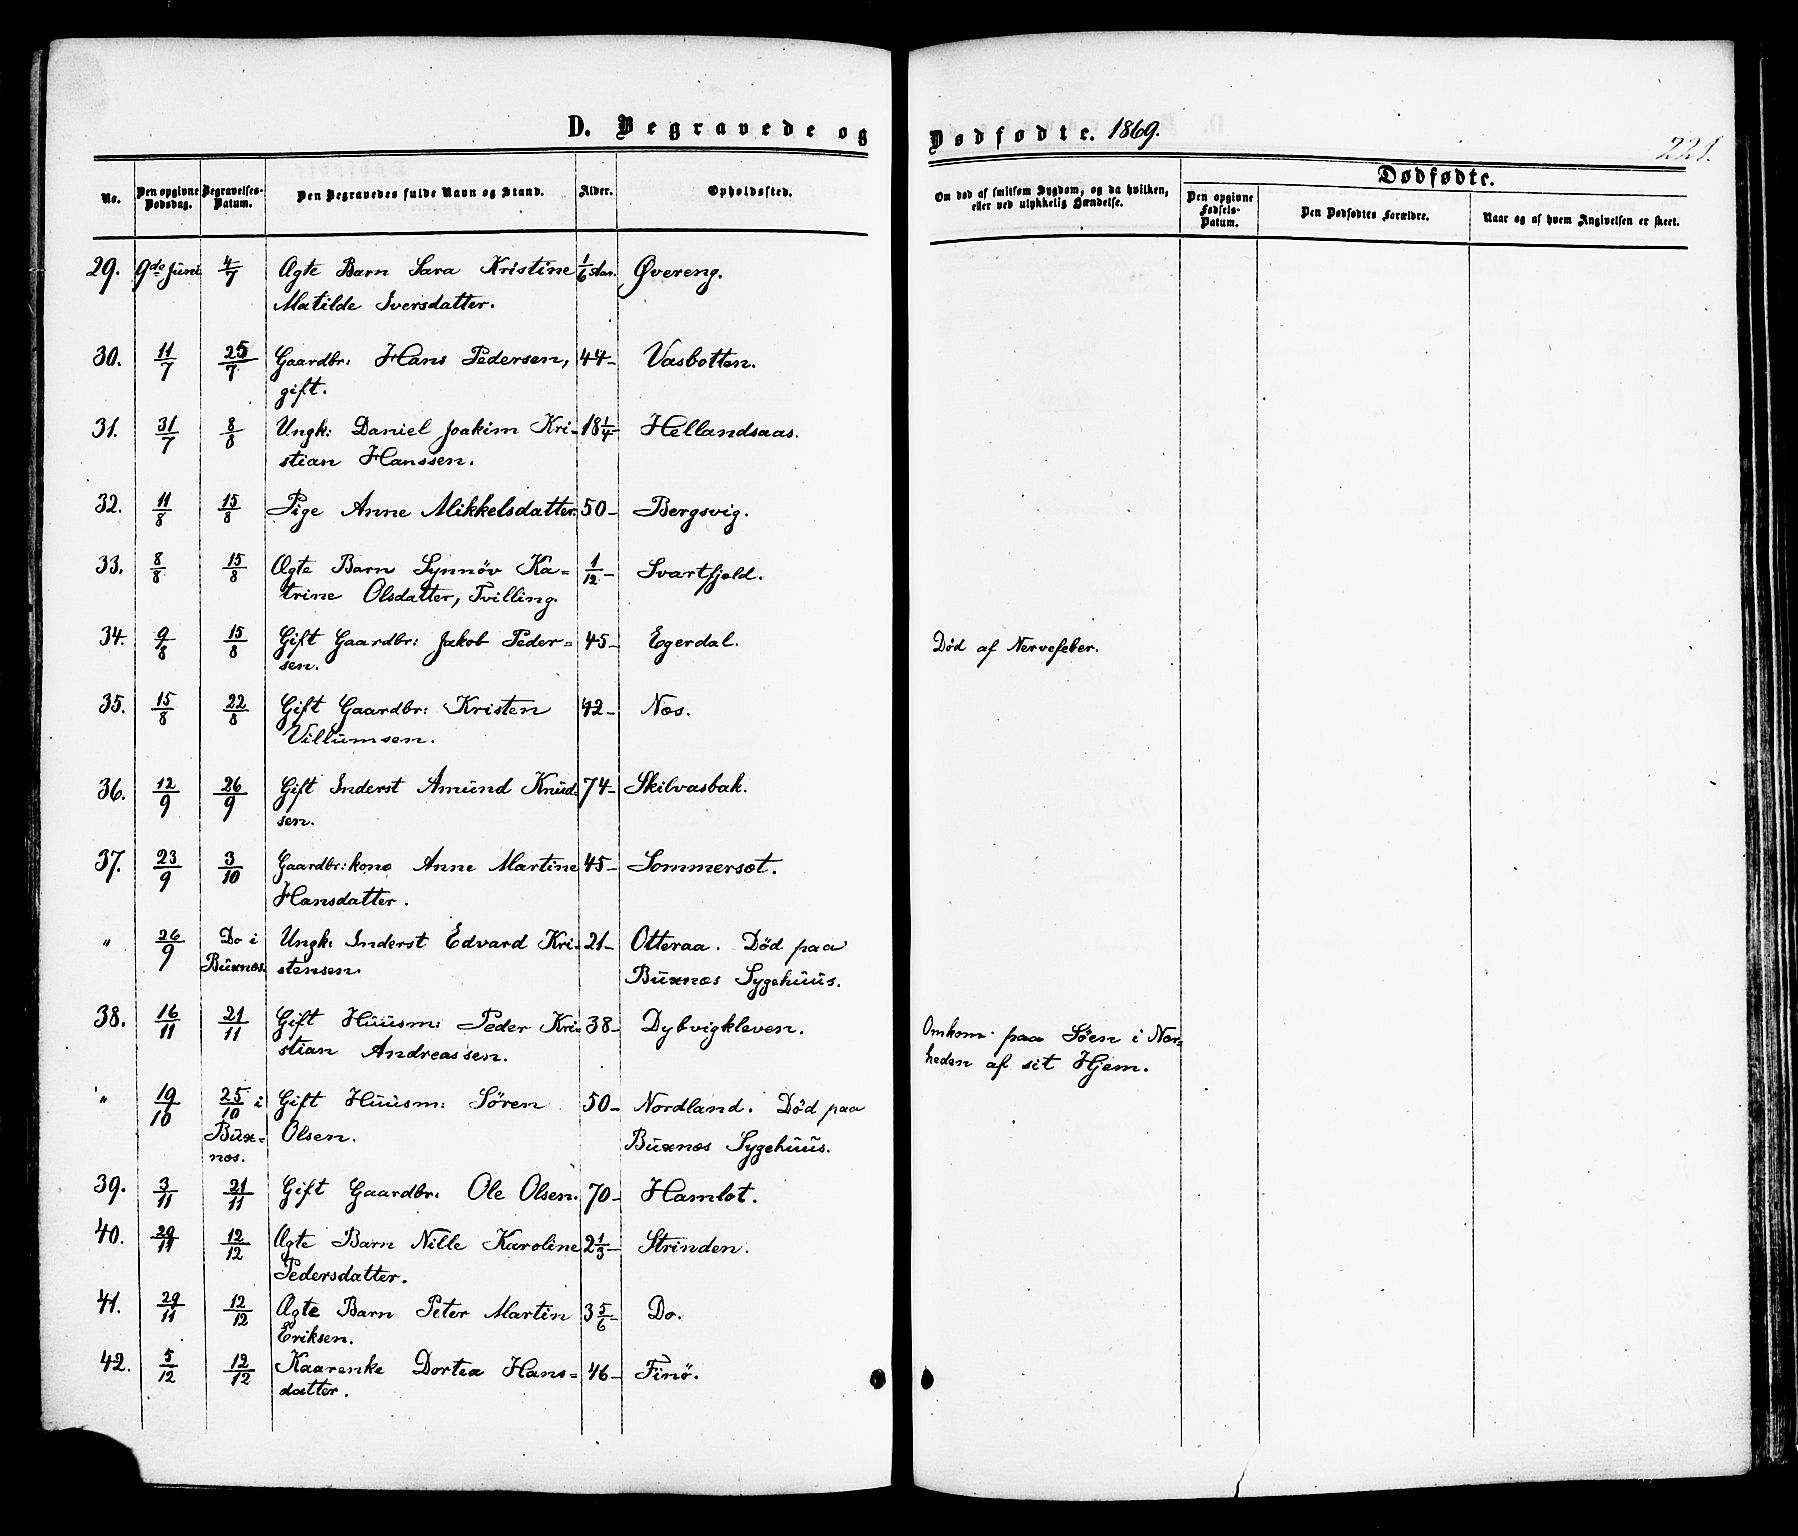 D. Begravede og Dødfødte. 1869.
221.
No. Den opgivne Dødsdag. Begravelses-Datum. Den Begravedes fulde Navn og Stand. Alder. Opholdssted. Om død af smitsom Sygdom, og da hvilken, eller ved ulykkelig Hændelse.
Dødfødte.
Den opgivne Fødsels-Datum. Den Dødfødtes Forældre. Naar og af hvem Angivelsen er skeet.
29. 9de Juni 4/7 Ægte Barn Sara Kristine 1/6 Aar. Øvereng.
Matilde Iversdatter.
30. 11/7 25/7 Gaardbr: Hans Pedersen, 44- Vasbotten.
gift.
31. 31/7 8/8 Ungk: Daniel Joakim Kri- 18 1/4- Hellandsaas.
stian Hanssen.
32. 11/8 15/8 Pige Anne Mikkelsdatter. 50- Bergsvig.
33. 8/8 15/8 Ægte Barn Synnöv Ka= 1/12- Svartfjeld.
trine Olsdatter, Tvilling.
34. 9/8 15/8 Gift Gaardbr: Jakob Peder= 45- Egerdal. Død af Nervefeber.
sen.
35. 15/8 22/8 Gift Gaardbr: Kristen 42- Næs.
Villumsen.
36. 12/9 26/9 Gift Inderst Amund Knud- 74- Skilvasbak.
sen.
37. 23/9 3/10 Gaardbr:kone Anne Martine 45- Sommersæt.
Hansdatter.
" 26/9 Do i Ungk: Inderst Edvard Kri- 21- Otteraa. Død paa
Buxnæs. stensen. Buxnæs Sygehuus.
38. 16/11 21/11 Gift Huusm: Peder Kri- 38- Dybvigkleven. Omkom paa Söen i Nær-
stian Andreassen. heden af sit Hjem.
" 19/10 25/10 i Gift Huusm: Sören 50- Nordland. Død paa
Bux- Olsen. Buxnæs Sygehuus.
næs.
39. 3/11 21/11 Gift Gaardbr: Ole Olsen. 70- Hamlot.
40. 29/11 12/12 Ægte Barn Nille Karoline 2 1/3- Strinden.
Pedersdatter.
41. 29/11 12/12 Ægte Barn Peter Martin 3 5/6 Do.
Eriksen.
42. 5/12 12/12 Kaarenke Dortea Hans= 46- Finö.
datter.